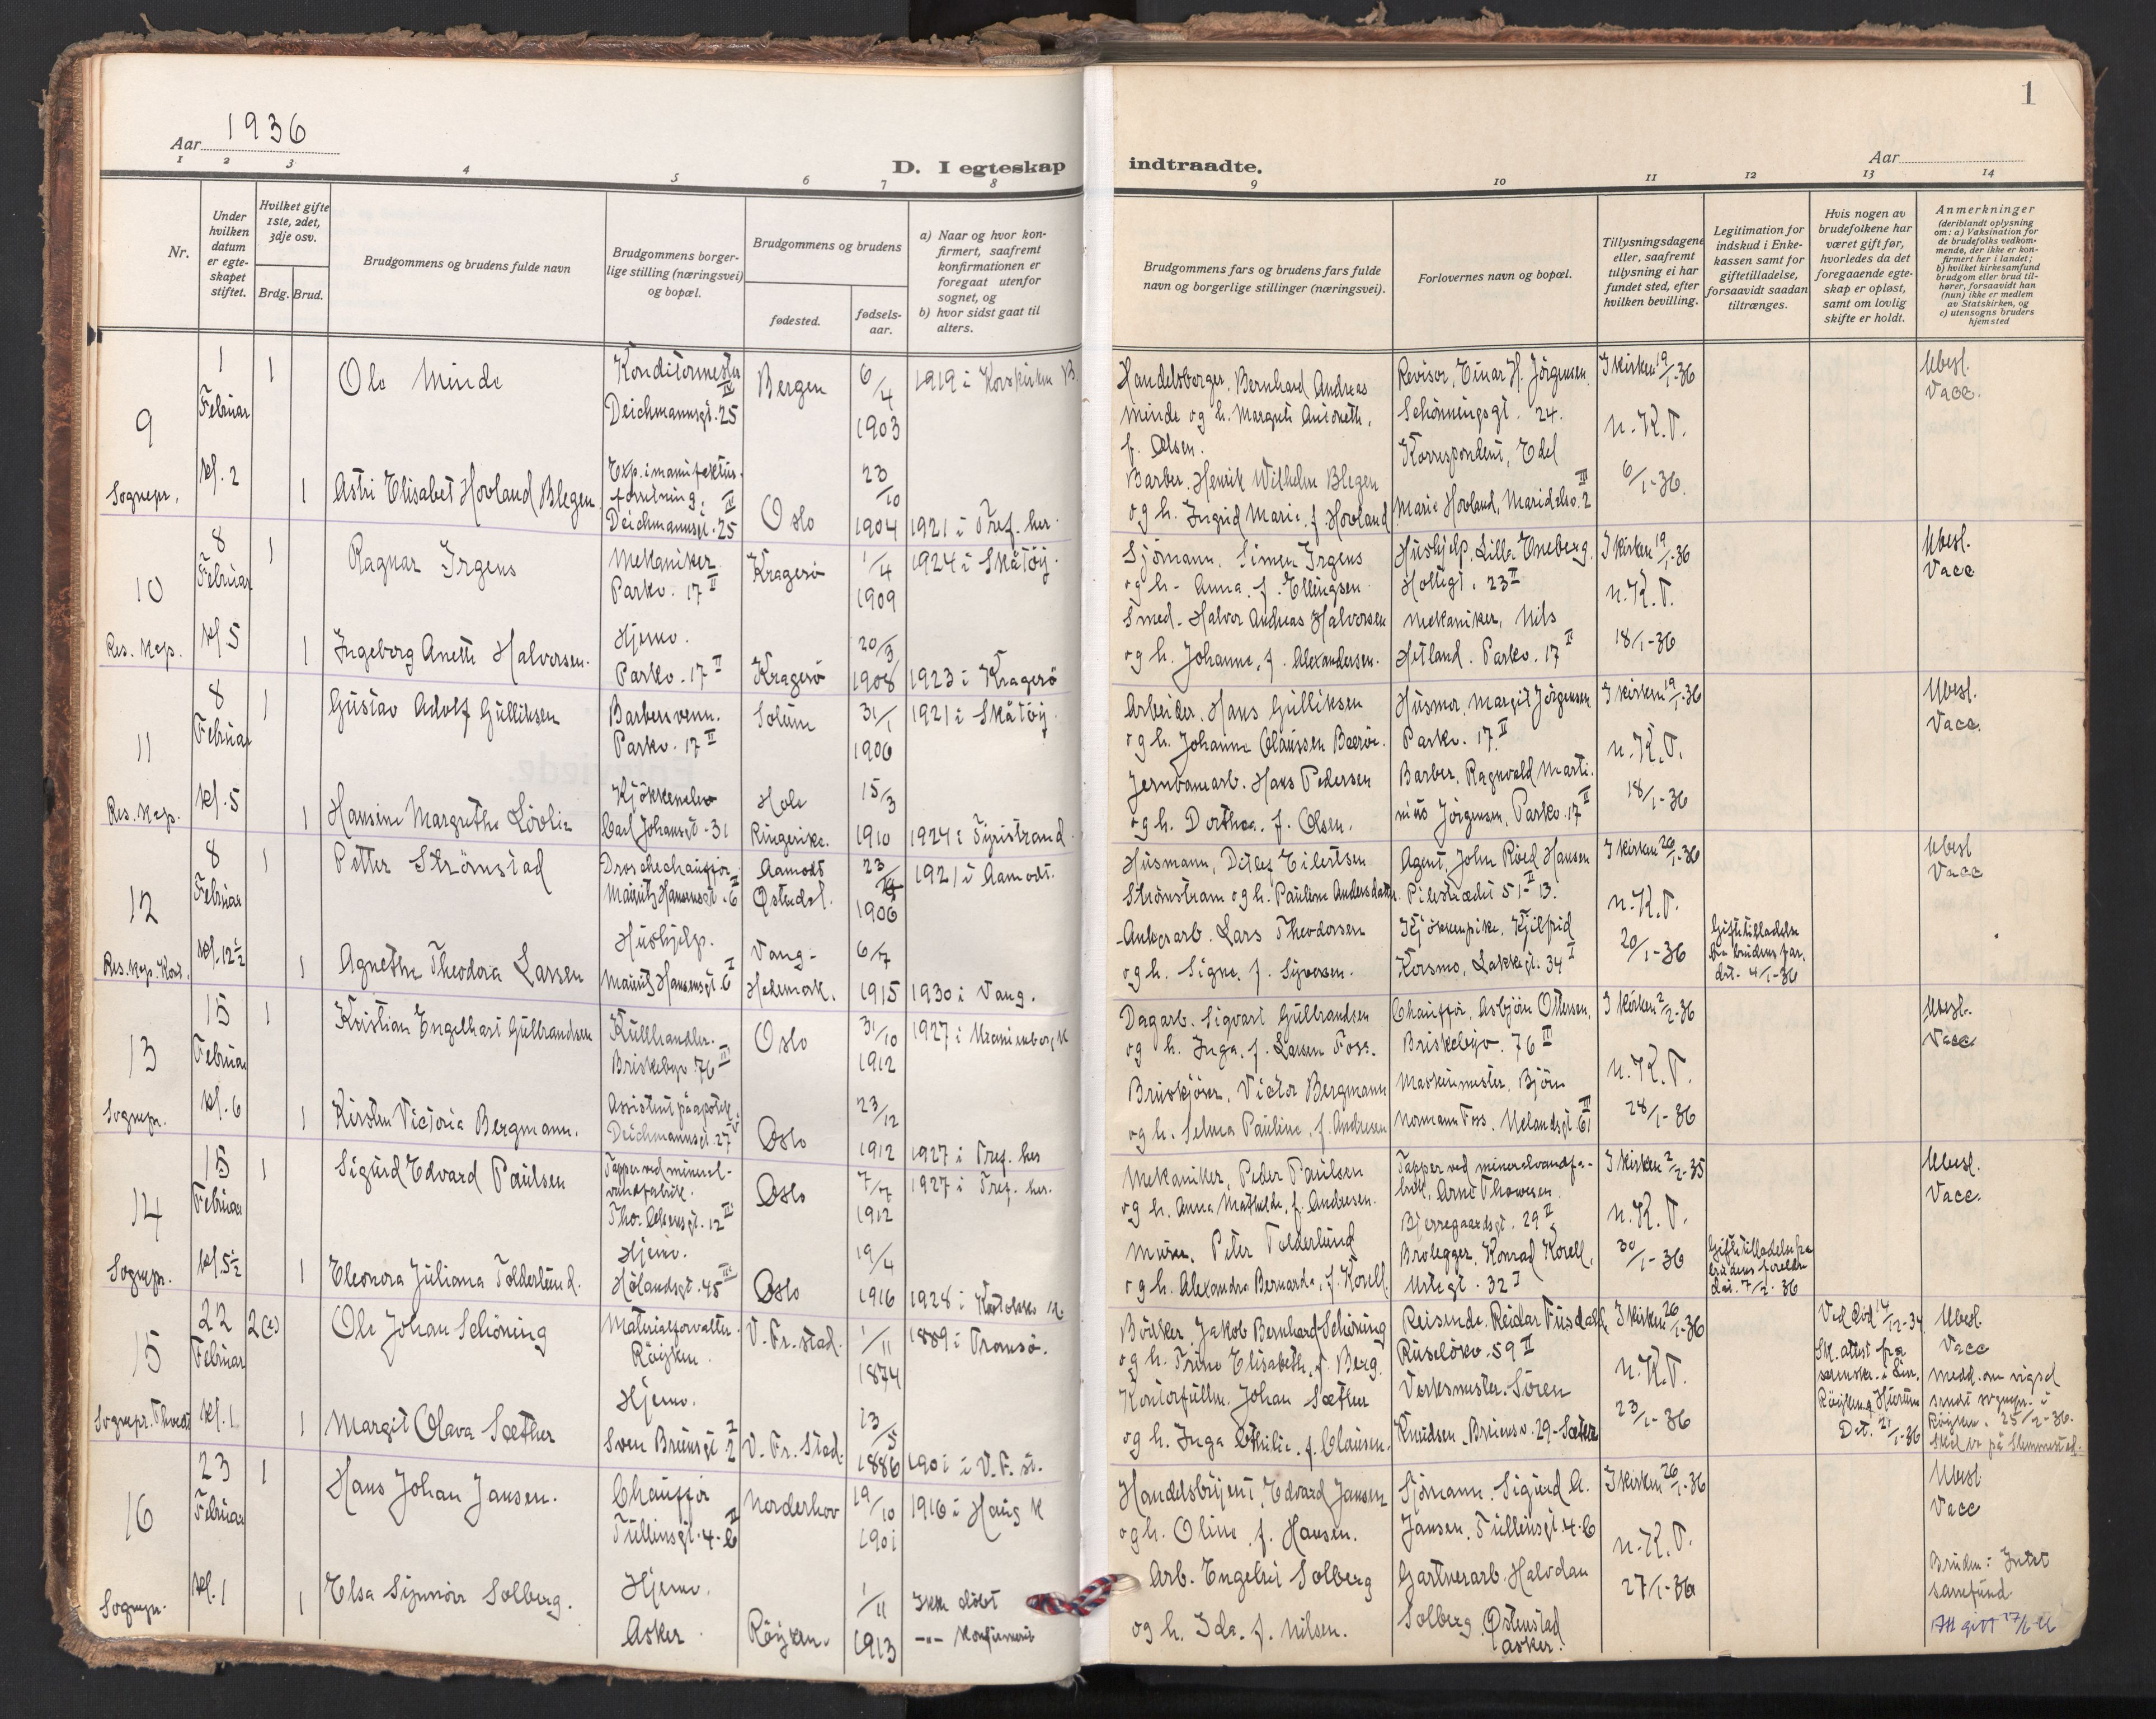 Aar 1936
D. I egteskap indtraadte.
Aar
1
1 2 3 4 5 6 7 8 9 10 11 12 13 14
Nr.
Under hvilken datum er egteskapet stiftet.
Hvilket gifte 1ste, 2det, 3dje osv.
Brdg. Brud.
Brudgommens og brudens fulde navn
Brudgommens borgerlige stilling (næringsvei) og bopæl.
Brudgommens og brudens
fødested.
fødselsaar.
a) Naar og hvor konfirmert, saafremt konfirmationen er foregaat utenfor sognet, og
b) hvor sidst gaat til alters.
Brudgommens fars og brudens fars fulde navn og borgerlige stillinger (næringsvei).
Forlovernes navn og bopæl.
Tillysningsdagene eller, saafremt tillysning ei har fundet sted, efter hvilken bevilling.
Legitimation for indskud i Enkekassen samt for giftetilladelse, forsaavidt saadan tiltrænges.
Hvis nogen av brudefolkene har været gift før, hvorledes da det foregaaende egteskap er opløst, samt om lovlig skifte er holdt.
Anmerkninger
(deriblandt oplysning om: a) Vaksination for de brudefolks vedkommende, der ikke er konfirmert her i landet; b) hvilket kirkesamfund brudgom eller brud tilhører, forsaavidt han (hun) ikke er medlem av Statskirken, og c) utensogns bruders hjemsted
9
1 Februar
kl. 2
Sognepr.
1 Ole Minde
Konditormester
Deichmannsgt. 25 IV
Bergen
6/4 1903
1919 i Korskirken B.
Handelsborger, Bernhard Andreas
Minde og h. Margrete Antoneth,
f. Olsen.
Revisor, Einar H. Jörgensen.
Schönningsgt. 24.
I kirken 19/1-36
n. K. T.
6/1-36.
Ubesl.
Vacc.
1 Astri Elisabet Hovland Blegen
Exp. i manufaktur-
forretning.
Deichmannsgt. 25 IV
Oslo
23/10 1904
1921 i Tref. her.
Barber, Henrik Wilhelm Blegen
og h. Ingrid Marie, f. Hovland
Korrespondent, Edel
Marie Hovland, Maridalsv. 2 III
10
8 Februar
kl 5
Res. kap.
1 Ragnar Irgens
Mekaniker
Parkv. 17 II
Kragerö
1/4 1909
1924 i Skåtöy.
Sjömann, Simen Irgens
og h. Anna, f. Ellingsen
Hushjelp, Lilla Eneberg.
Holtegt. 23 II
I kirken 19/1-36
n. K. T.
18/1-36
Ubesl.
Vacc
1 Ingeborg Anette Halvorsen.
Hjemv.
Parkv. 17 II
Kragerö
20/3 1908
1923 i Kragerö
Smed. Halvor Andreas Halvorsen
og h. Johanne, f. Alexandersen.
Mekaniker, Nils
Hetland. Parkv. 17 II
11
8 Februar
kl. 5
Res. kap.
1 Gustav Adolf Gulliksen
Barbersvenn.
Parkv. 17 II
Solum
31/1 1906
1921 i Skåtöy.
Arbeider, Hans Gulliksen
og h. Johanne Claussen
Husmor, Margit Jörgensen
Parkv. 17 II
I kirken 19/1-36
n. K. T.
18/1-36
Ubesl.
Vacc.
1 Hansine Margrethe Lövlie
Kjökkenelev
Carl Johansgt. 31
Hole
Ringerike.
15/3 1910
1924 i Tyristrand.
Jernbanearb. Hans Pedersen
og h. Dorthea. f. Olsen.
Barber, Ragnvald Marti-
nius Jörgensen, Parkv. 17 II
12
8 Februar
kl. 12 1/2
Res. kap.
1 Petter Strömstad
Droschechaufför
Mauritz Hansensgt. 6 I
Aamodt
Østerdal.
23/ 1906
1921 i Aamodt.
Husmann, Detlef Eilertsen
Strömstram og h. Pauline Andersdatter.
Agent, John Roed Hansen
Pilestredet 51 - B. II
I kirken 26/1-36
n. K. T.
20/1-36
Ubesl
Vacc
1 Agnethe Theodora Larsen
Hushjelp.
Mauritz Hansensgt. 6 I
Vang.
Hedemark.
6/7 1915
1930 i Vang.
Ankerarb. Lars Theodorsen
og h. Signe, f. Syversen.
Kjökkenpike, Kjelfrid
Korsmo, Lakkegt. 34 I
Giftetilladelse
fra brudens far,
dat. 4/1-36
13
15 Februar
kl. 6
Sognepr.
1 Kristian Engelhart Gulbrandsen
Kullhandler.
Briskebyv. 76 III
Oslo
31/10 1912
1927 i Uranienborg k
Dagarb. Sigvart Gulbrandsen
og h. Inga, f. Larsen Foss.
Chaufför, Asbjörn Ottersen.
Briskebyv. 76 II
I kirken 2/2-36
n. K. T.
28/1-36
Ubesl.
Vacc
1 Kirsten Victoria Bergmann.
Assistent på apotek
Deichmannsgt. 27
Oslo
23/12 1912
1927 i Tref. her
Bruskjörer, Victor Bergmann
og h. Selma Pauline, f. Andresen
Maskinmester, Björn
Normann Foss. Uelandsgt 61 III
14
15 Februar
kl. 5 1/2
Sognepr.
1 Sigurd Edvard Paulsen
Tapper ved mineral-
vandfabrik.
Thor Olsensgt. 12 III
Oslo
7/7 1912
1927 i Tref. her.
Mekaniker, Peder Paulsen
og h. Anna Mathilde, f. Andresen.
Tapper ved mineralvandfa-
brik, Arne Thowsen.
Bjerregaardsgt. 29 II
I kirken 2/2-35
n. K. T.
30/1-36
Ubesl.
Vacc.
1 Eleonora Juliana Tolderlund.
Hjemv.
Hölandsgt. 45 III
Oslo
19/4 1916
1928 i
Murer, Peter Tolderlund
og h. Alexandra Bernarda, f. Korell.
Brolegger, Konrad Korell,
Urtegt. 32 I
Giftetilladelse fra
brudens foreldre
dat. 7/2-36
15
22 Februar
kl. 1
Sognepr. Thvedt
2(e) Ole Johan Schöning
Materialforvalter.
Röyken.
V. Fr. stad.
1/11 1874
1889 i Tromsö.
Bödker, Jakob Bernhard Schöning
og h. Trine Elisabeth, f. Berg.
Reisende, Reidar Fusdahl,
Ruselökv. 59 II
I kirken 26/1-36
n. K. T.
23/1-36
Ved död 14/12-34
Sk. attest fra
sorenskr. i Lier,
Röyken og Hurum
Dat. 21/1-36
Ubesl.
Vacc
medd. om vigsel
sendt sognepr. i
Röyken. 25/2-36.
skal bo på Slemmestad.
1 Margit Olava Sæther
Hjemv.
Sven Bruunsgt 2
V. Fr. Stad.
13/5 1886
1901 i V. F. st.
Kontorfullm. Johan Sæther
og h. Inga Othilie, f. Clausen.
Verksmester, Sören
Knudsen, Bruensv. 29-Sæter
16
23 Februar
kl. 1
Sognepr.
1 Hans Johan Jansen.
Chaufför
Tullinsgt. 4-b II
Norderhov
19/10 1901
1916 i Haug k
Handelsbetjent, Edvard Jansen
og h. Oline, f. Hansen.
Sjömann. Sigurd A.
Jansen, Tullinsgt 4-b
I kirken 26/1-36
n. K. T.
27/1-36
Ubesl
Vacc
1 Elsa Synnöve Solberg.
Hjemv.
Asker.
Röyken.
1/11 1913
Ikke döbt
-"- konfirmert
Arb. Engebret Solberg
og h. Ida. f. Nilsen.
Gartnerarb. Halvdan
Solberg Østenstad
Asker.
Bruden: Intet
samfund